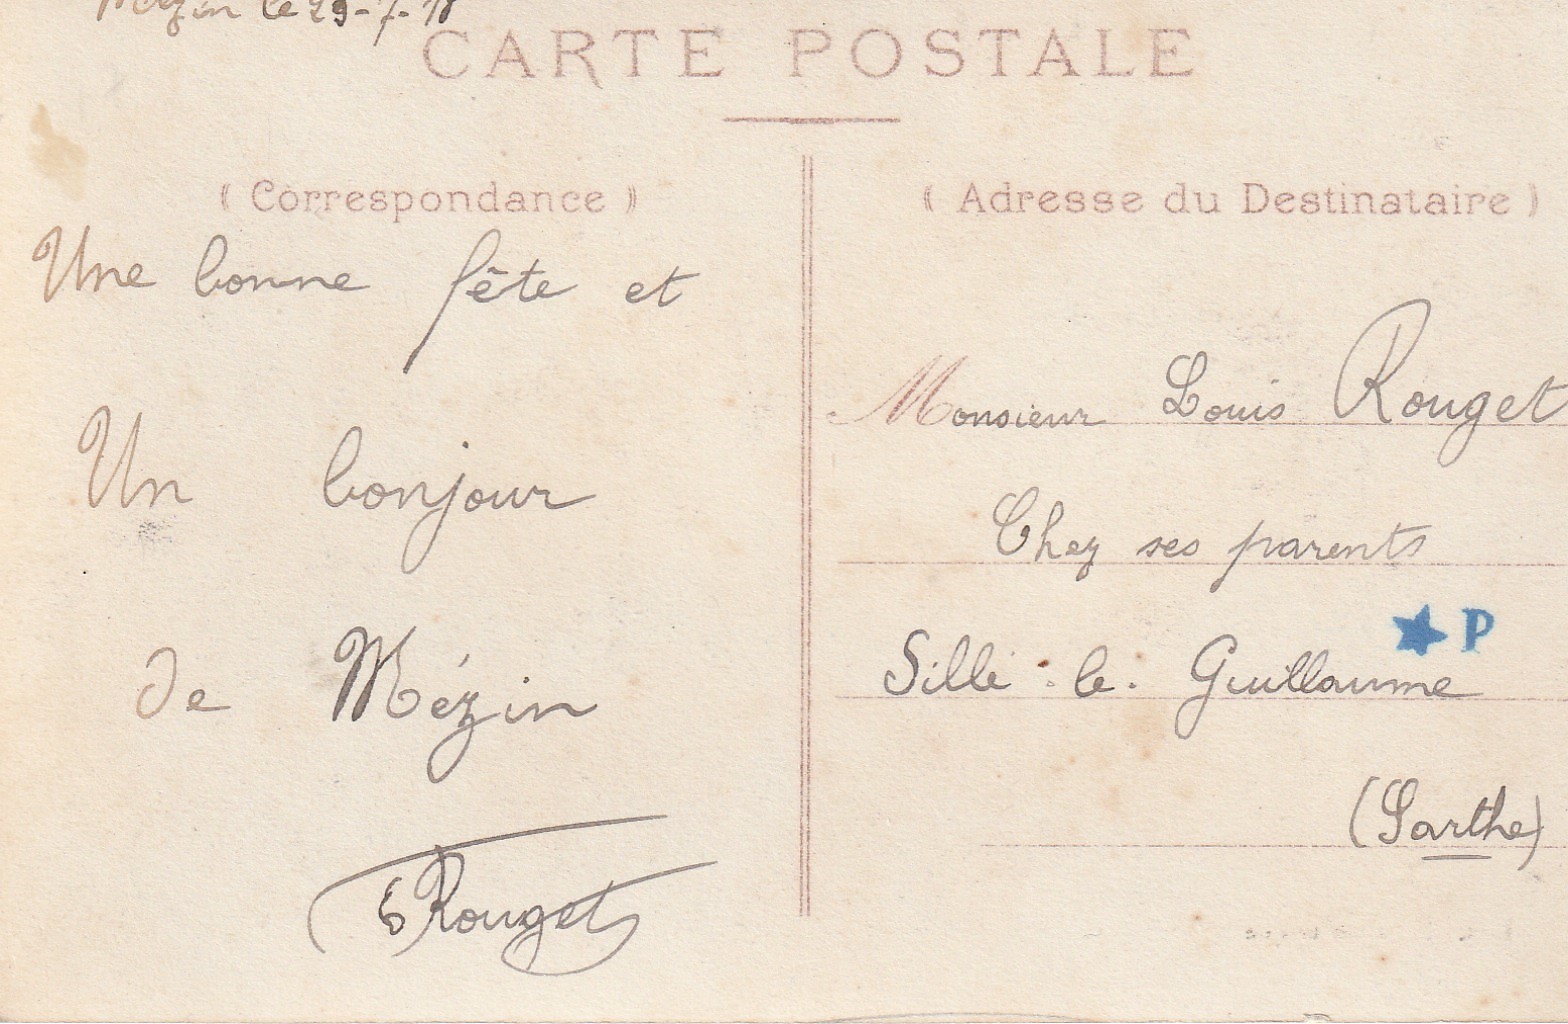 Mézin le 29-7-18
CARTE POSTALE
( Correspondance )
Une bonne fête et
Un bonjour
de Mézin
Rouget
( Adresse du Destinataire )
Monsieur Louis Rouget
Chez ses parents
★ P
Sillé-le-Guillaume
(Sarthe)